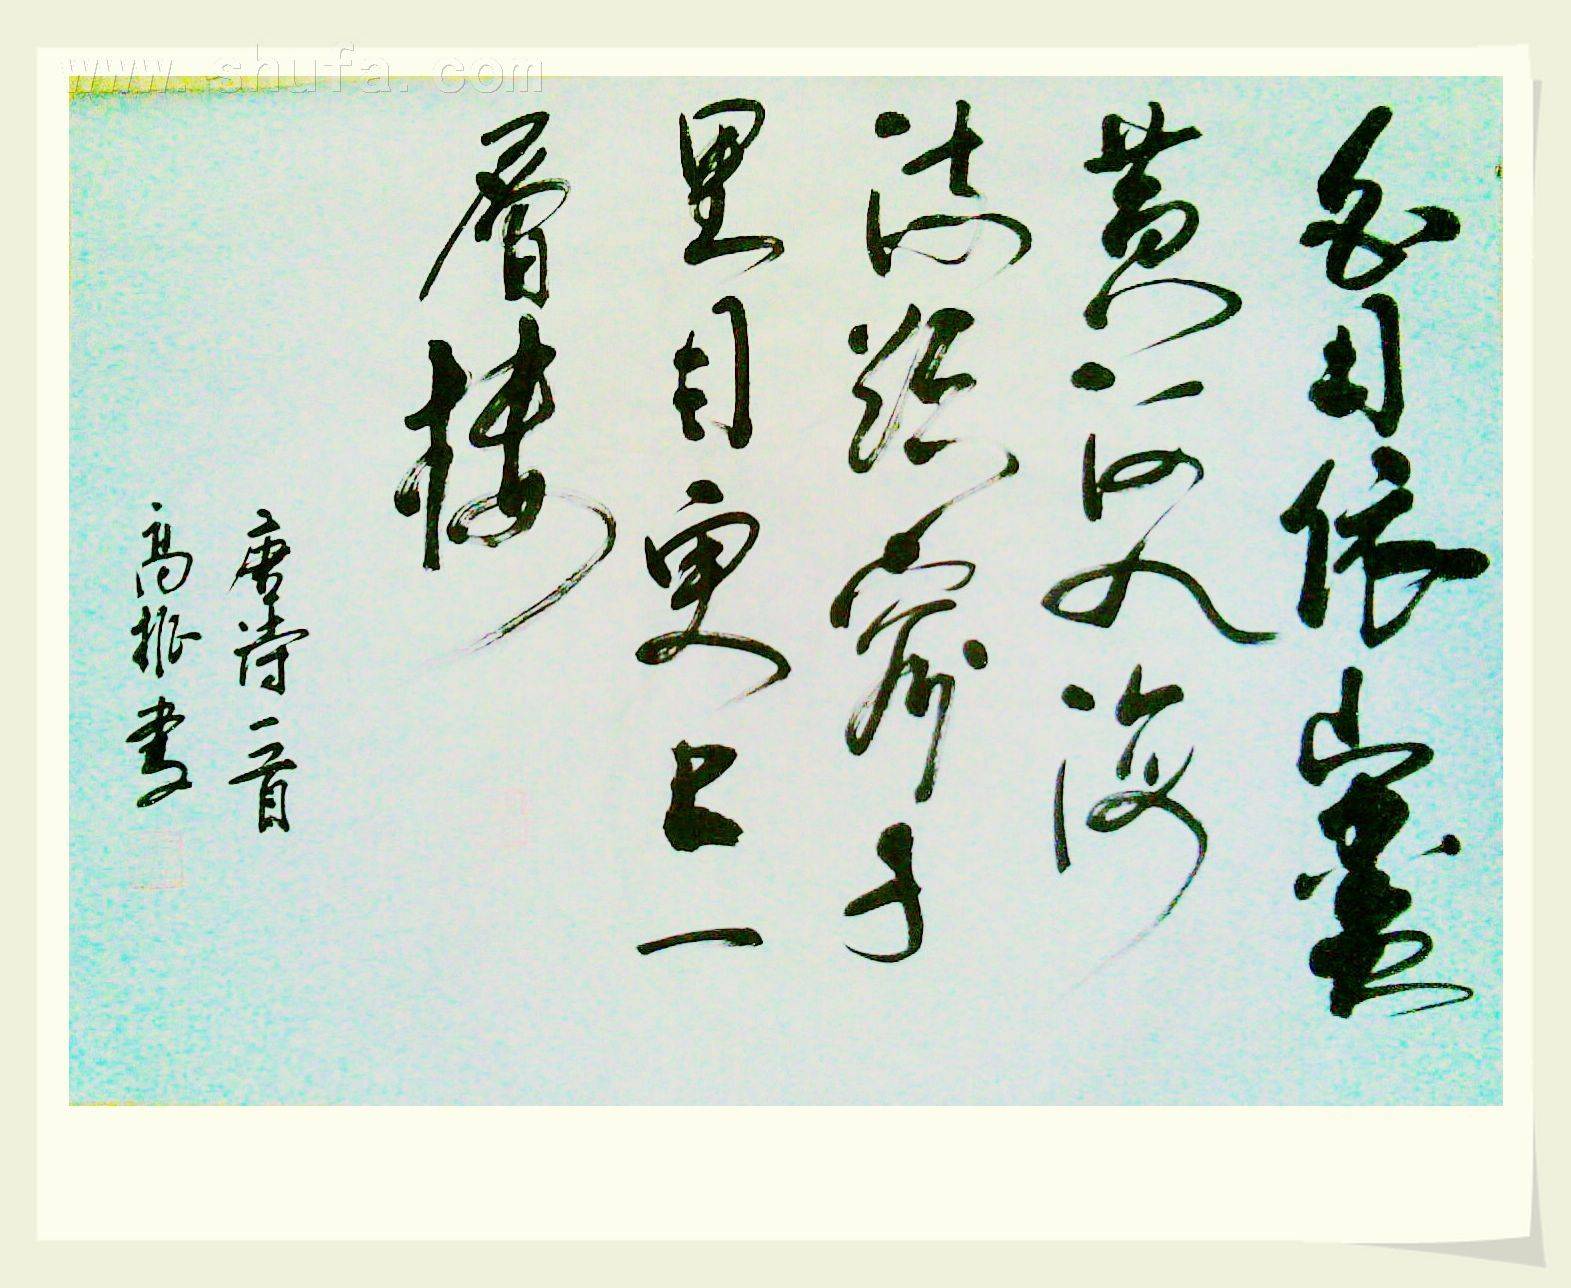 www.shufa.com
白日依山盡
黄河入海
流欲窮千
里目更上一
層樓
唐詩一首
高書